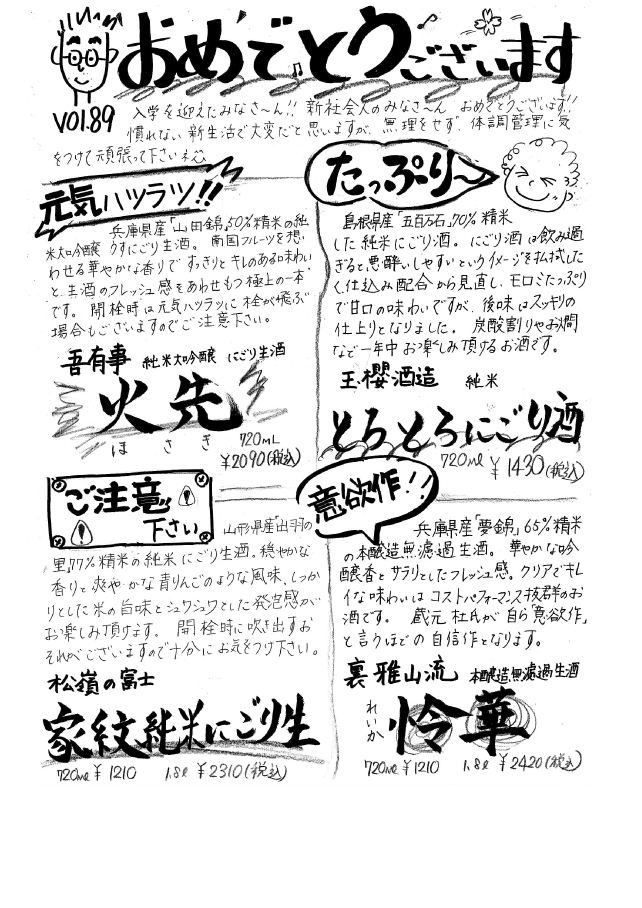 おめでとうございます
VOl.89
入学を迎えたみなさ〜ん!! 新社会人のみなさ〜ん おめでとうございます!!
慣れない新生活で大変だと思いますが、無理をせず、体調管理に気
をつけて頑張って下さいませ
元気ハツラツ!!
兵庫県産「山田錦」50%精米の純
米大吟醸うすにごり生酒。南国フルーツを想
わせる華やかな香りですっきりとキレのあるの味わい
と、生酒のフレッシュ感をあわせもつ極上の一本
です。開栓時は元気ハツラツに栓が飛ぶ
場合もございますのでご注意下さい。
吾有事 純米大吟醸 にごり生酒
火先
ほさき
720mL
¥2090(税込)
たっぷり〜
島根県産「五百万石」70%精米
した純米にごり酒。にごり酒は飲み過
ぎると、悪酔いしやすいというイメージを払拭した
く、仕込み配合から見直し、モロミたっぷり
で甘口の味わいですが、後味はスッキリの
仕上りとなりました。炭酸割りやお燗
など一年中お楽しみ頂けるお酒です。
玉櫻酒造 純米
とろとろにごり酒
720ml ¥1430(税込)
ご注意
下さい
山形県産「出羽の
里」77%精米の純米にごり生酒。穏やかな
香りと爽やかな青りんごのような風味、しっか
りとした米の旨味とシュワシュワとした発泡感が
お楽しみ頂けます。開栓時に吹き出すお
それがございますので十分にお気をつけ下さい。
松嶺の富士
家紋純米にごり生
720ml ¥1210 1.8l ¥2310(税込)
意欲作!!
兵庫県産「夢錦」65%精米
の本醸造無濾過生酒。華やかな吟
醸香とサラリとしたフレッシュ感。クリアでキレ
イな味わいはコストパフォーマンス抜群のお
酒です。蔵元杜氏が自ら「意欲作」
と言うほどの自信作となります。
裏雅山流 本醸造無濾過生酒
れいか
怜華
720ml ¥1210 1.8l ¥2420(税込)